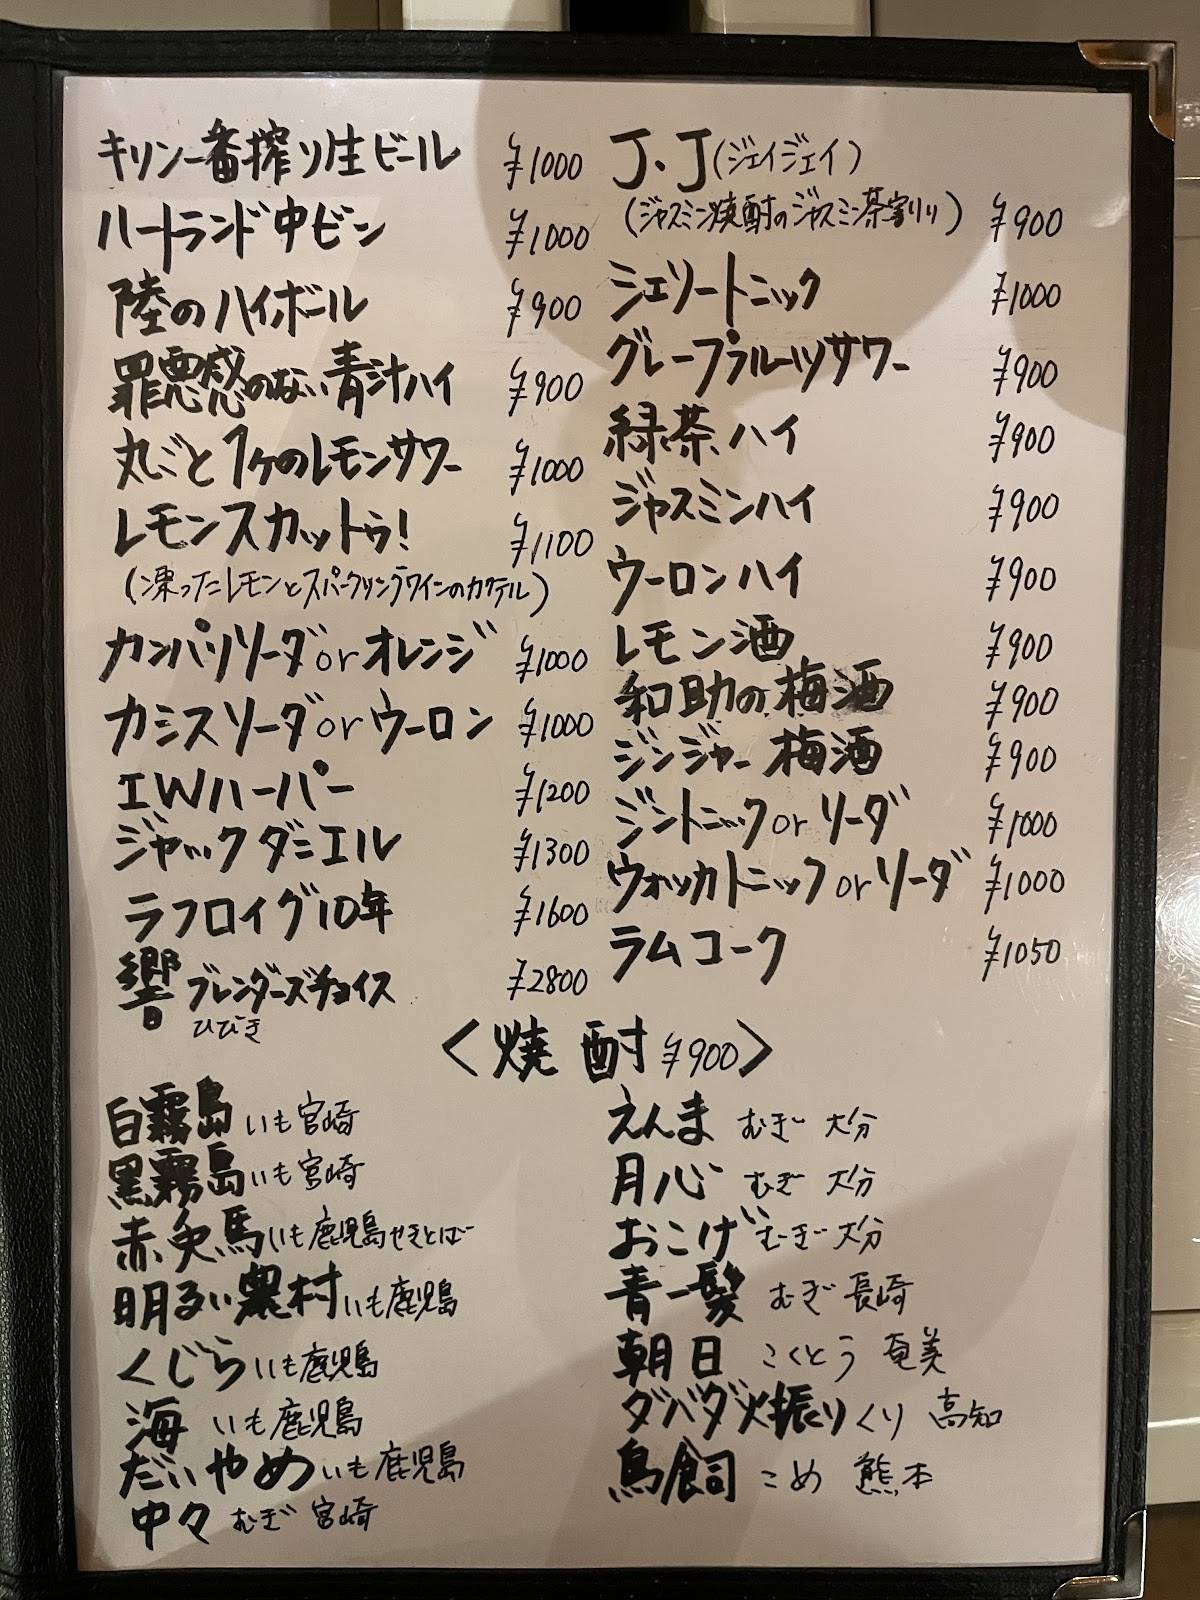 キリン一番搾り生ビール ¥1000
ハートランド中ビン ¥1000
陸のハイボール ¥900
罪悪感のない青汁ハイ ¥900
丸ごと1ヶのレモンサワー ¥1000
レモンスカットゥ! ¥1100
(凍ったレモンとスパークリングワインのカクテル)
カンパリソーダorオレンジ ¥1000
カシスソーダorウーロン ¥1000
IWハーパー ¥1200
ジャックダニエル ¥1300
ラフロイグ10年 ¥1600
響 ブレンダーズチョイス ¥2800
ひびき
J.J(ジェイジェイ)
(ジャスミン焼酎のジャスミン茶割り) ¥900
シェリートニック ¥1000
グレープフルーツサワー ¥900
緑茶ハイ ¥900
ジャスミンハイ ¥900
ウーロンハイ ¥900
レモン酒 ¥900
和助の梅酒 ¥900
ジンジャー梅酒 ¥900
ジントニックorソーダ ¥1000
ウォッカトニックorソーダ ¥1000
ラムコーク ¥1050
<焼酎 ¥900>
白霧島 いも 宮崎
黒霧島 いも 宮崎
赤兎馬 いも 鹿児島 せきとば
明るい農村 いも 鹿児島
くじら いも 鹿児島
海 いも 鹿児島
だいやめ いも 鹿児島
中々 むぎ 宮崎
えんま むぎ 大分
月心 むぎ 大分
おこげ むぎ 大分
青一髪 むぎ 長崎
朝日 こくとう 奄美
ダバダ火振り くり 高知
鳥飼 こめ 熊本